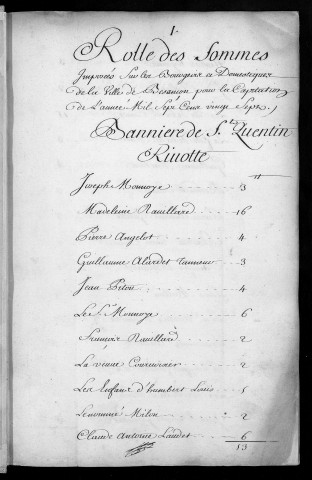 1.
Rolle des Sommes
Imposées Sur les Bourgeois et Domestiques
de la Ville de Besancon pour la Capitation
de L'année Mil Sept Cent vingt Sept.
Banniere de St. Quentin
Riuotte
Joseph Monnoye 3 tt
Madeleine Rauillard 16
Pierre Angelot 4
Guillaume Alardet tanneur 3
Jean Piton 4
Le Sr. Monnoye 6
François Rauillard 2
La veuue 2
Les Enfans d'humbert Louis 1
Lenommé Milon 2
Claude Antoine Laudet 6